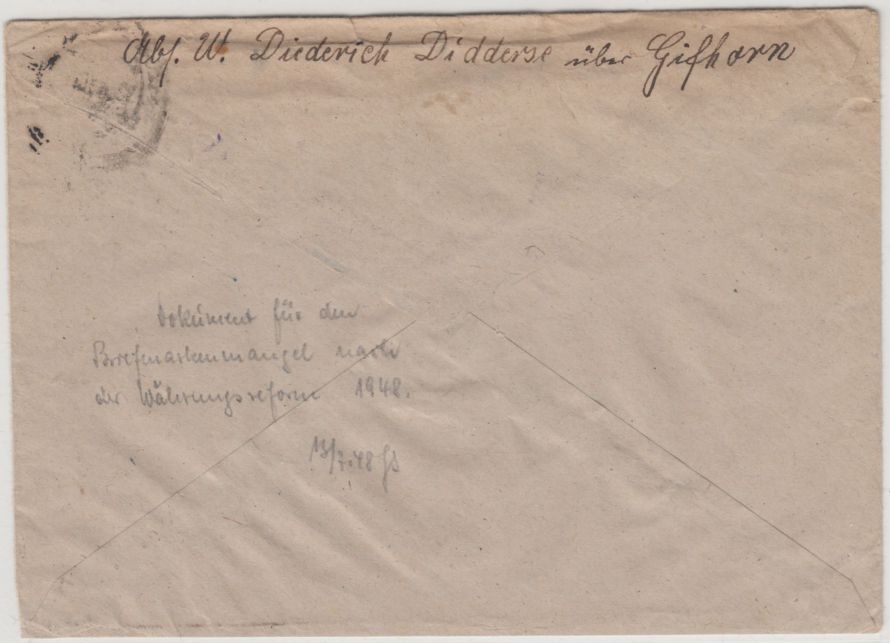 Abs. W. Diederich Didderse über Gifhorn
Dokument für den
Briefmarkenmangel nach
der Währungsreform 1948.
13/7.48 Gs